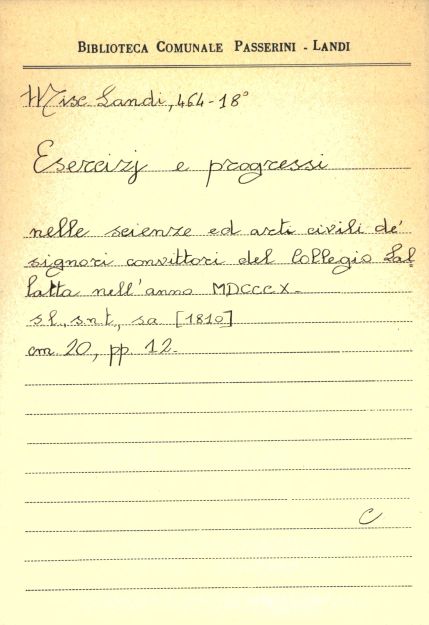 BIBLIOTECA COMUNALE PASSERINI - LANDI
Misc Landi, 464-18°
Esercizj e progressi
nelle scienze ed arti civili de'
signori convittori del Collegio Lal=
latta nell'anno MDCCCX.
sl, snt, sa [1810]
cm 20, pp. 12.
C